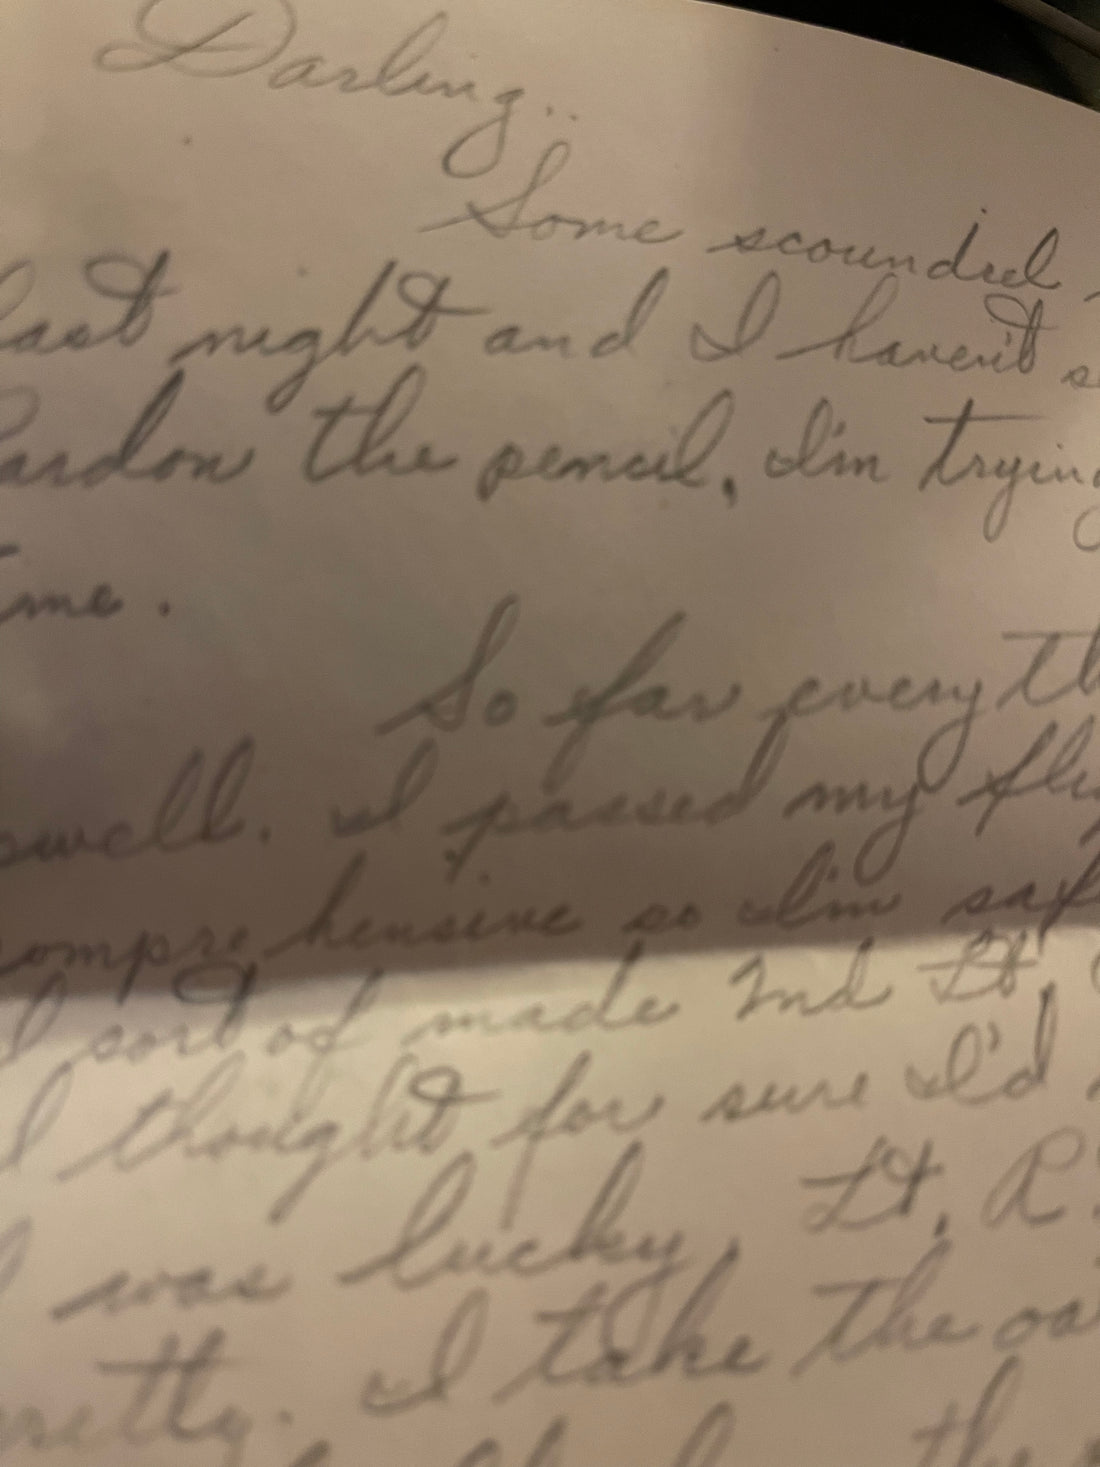 Darling..
Some scoundrel
last night and I haven't
Pardon the pencil, I'm trying
time.
So far everyth
swell. I passed my fli
comprehensive so I'm saf
I sort of made 2nd Lt.
I thought for sure I'd
I was lucky, Lt. R
pretty. I take the oa
the